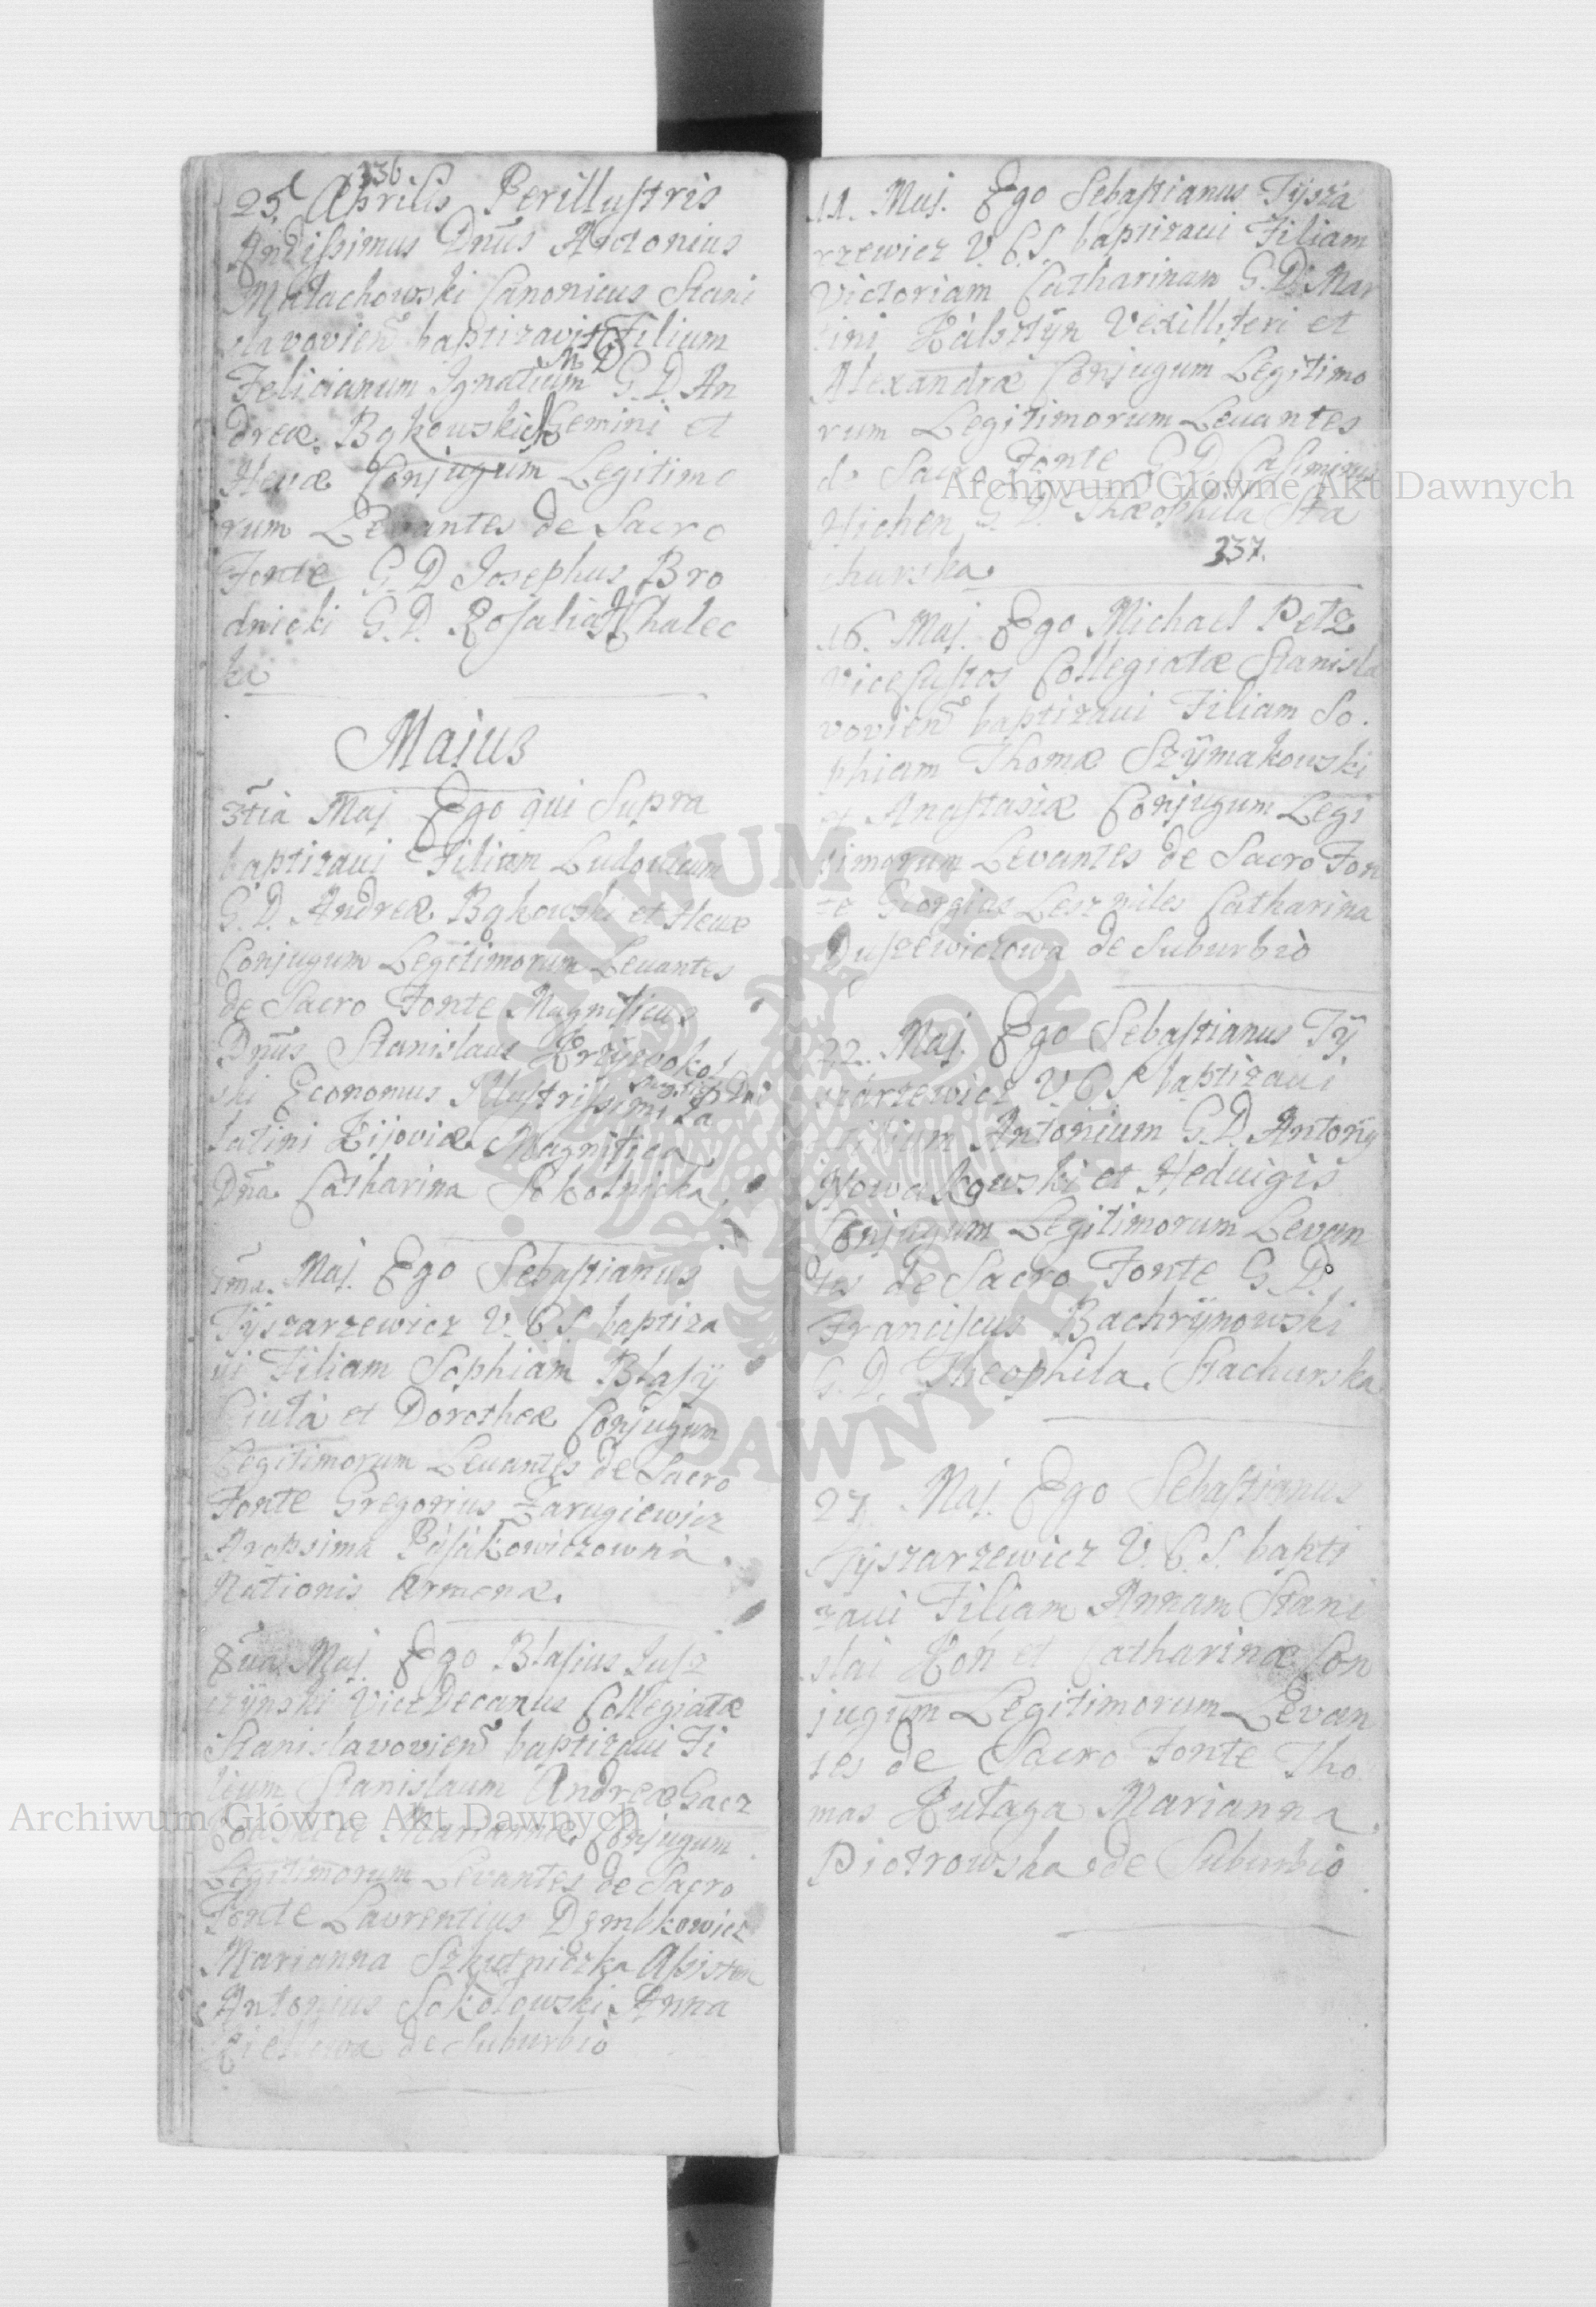 336.
25. Aprilis Perillustris
Rndissimus Dnus Antonius
Małachowski Canonicus Stani
slavovien baptizavit Filium
Felicianum Ignatium G. D. An
dreæ Bąkowski Gemini et
Hevæ Conjugum Legitimo
rum Levantes de Sacro
Fonte G. D Josephus Bro
dnicki G. D. Rosalia Chalec
ka
Maius
3tia Maj Ego qui Supra
baptizaui Filium Ludovicum
G. D. Andreæ Bąkowski et Heuæ
Conjugum Legitimorum Leuantes
de Sacro Fonte Magnificus
Dnus Stanislaus Krzywokol
ski Economus Illustrissimi Pa
latini Kijoviæ Magnifica
Dna Catharina Sokolnicka
Maj. Ego Sebastianus
Tyszarzewicz V. C. S. baptiza
ui Filiam Sophiam Blasij
Ciuła et Dorotheæ Conjugum
Legitimorum Leuantes de Sacro
Fonte Gregorius Zarugiewicz
Aropsima
Nationis Armenæ.
8ua Maj. Ego Blasius Jusz
czynski ViceDecanus Collegiatæ
Stanislavovien baptizaui Fi
lium Stanislaum Andreæ Gacz
et Mariannæ Conjugum
Legitimorum Levantes de Sacro
Fonte Laurentius Dembkowicz
Marianna Szkutniczka
Antonius Sokołowski Anna
de Suburbio
11. Maj. Ego Sebastianus Tysza
rzewicz V. C. S. baptizaui Filiam
Victoriam Catharinam G. D. Mar
tini Kalsztyn Vexilliferi et
Alexandræ Conjugum Legitimo
rum Legitimorum Leuantes
de Sacro Fonte G. D. Casimirus
Hichen G. D. Theophila Sta
churska.
337.
16. Maj. Ego Michael Petz
ViceCustos Collegiatæ Stanisla
vovien baptizaui Filiam So
phiam Thomæ Szymakowski
et Anastasiæ Conjugum Legi
timorum Levantes de Sacro Fon
te Georgius Lesz miles Catharina
Duszewiczowa de Suburbio
22. Maj. Ego Sebastianus Ty
szarzewicz V C S baptizaui
Filium Antonium G. D. Antonij
Nowakowski et Heduigis
Conjugum Legitimorum Levan
tes de Sacro Fonte G. D.
Franciscus Bachrynowski
G. D. Theophila Stachurska
27 Maj. Ego Sebastianus
Tyszarzewicz V. C. S. bapti
zaui Filiam Annam Stani
slai Koń et Catharinæ Con
jugum Legitimorum Levan
tes de Sacro Fonte Tho
mas Kułaga Marianna
Piotrowska de Suburbio
Archiwum Główne Akt Dawnych
Archiwum Główne Akt Dawnych
ARCHIWUM GŁÓWNE AKT DAWNYCH